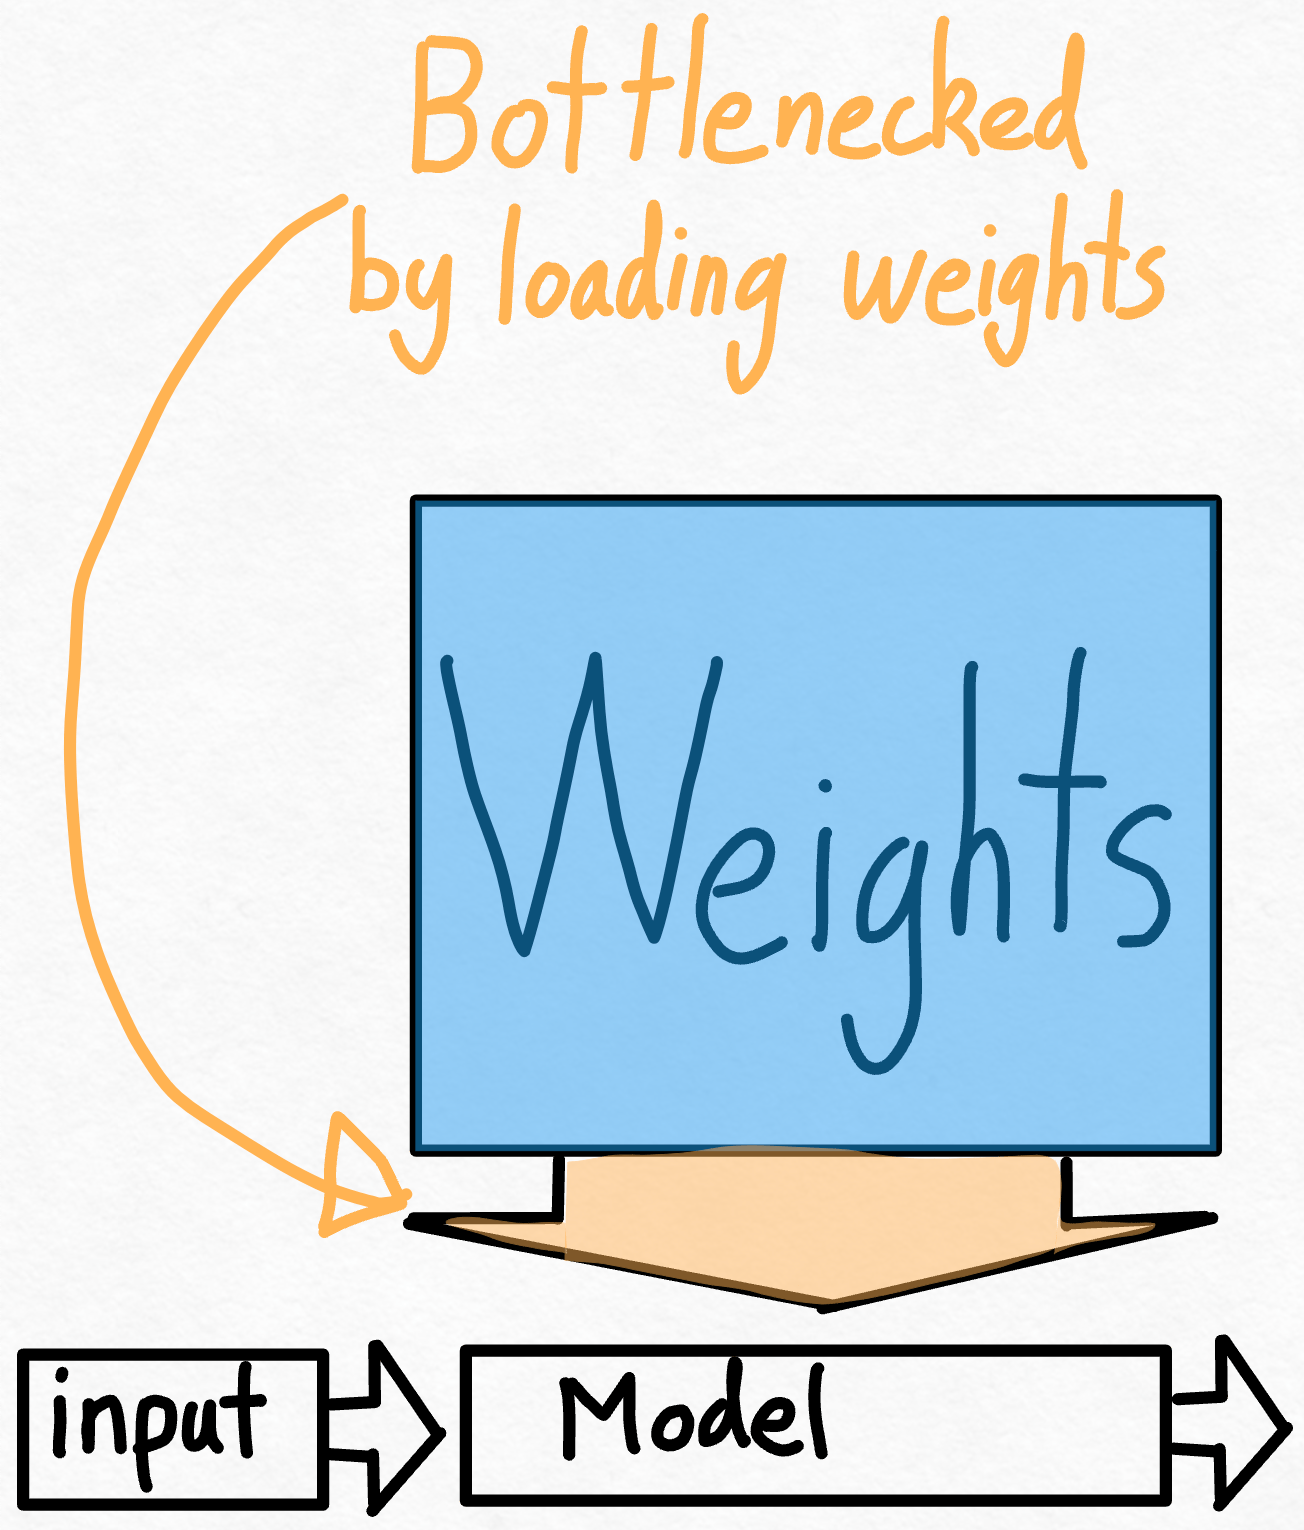 Bottlenecked
by loading weights
Weights
input
Model